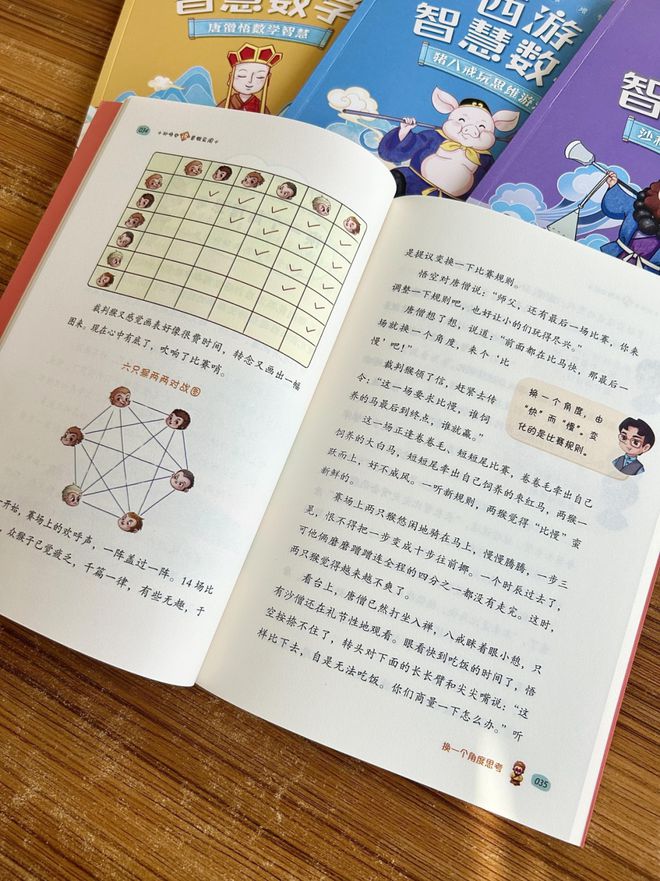 智慧数学
唐僧悟数学智慧
西游
智慧数
猪八戒玩思维游
智
沙和
034
裁判猴又感觉画表好像很费时间，转念又画出一幅
图来。现在心中有底了，吹响了比赛哨。
六只猴两两对战图
一开始，赛场上的欢呼声，一阵盖过一阵。14场比
，众猴子已觉疲乏，千篇一律，有些无趣，于
是提议变换一下比赛规则。
悟空对唐僧说：“师父，还有最后一场比赛，你来
调整一下规则吧，也好让小的们玩得尽兴。”
唐僧想了想，说道：“前面都在比马快，那最后一
场就换一个角度，来个‘比
慢’吧！”
裁判猴领了信，赶紧去传
令：“这一场要求比慢，谁饲
养的马最后到终点，谁就赢。”
换一个角度，由
“快”而“慢”，变
化的是比赛规则。
这一场正逢卷卷毛、短短尾比赛，卷卷毛牵出自己
饲养的大白马，短短尾牵出自己饲养的枣红马，两猴一
跃而上，好不威风。一听新规则，两猴觉得“比慢”蛮
新鲜的。
赛场上两只猴悠闲地骑在马上，慢慢腾腾，一步三
晃，恨不得把一步变成十步往前挪。一个时辰过去了，
可他俩磨磨蹭蹭连全程的四分之一都没有走完。这时，
两只猴觉得越来越不爽了。
看台上，唐僧已然打坐入禅，八戒眯着眼小憩，只
有沙僧还在礼节性地观看。眼看快到吃饭的时间了，悟
空按捺不住了，转头对下面的长长臂和尖尖嘴说：“这
样比下去，自是无法吃饭。你们商量一下怎么办。”听
换一个角度思考
035